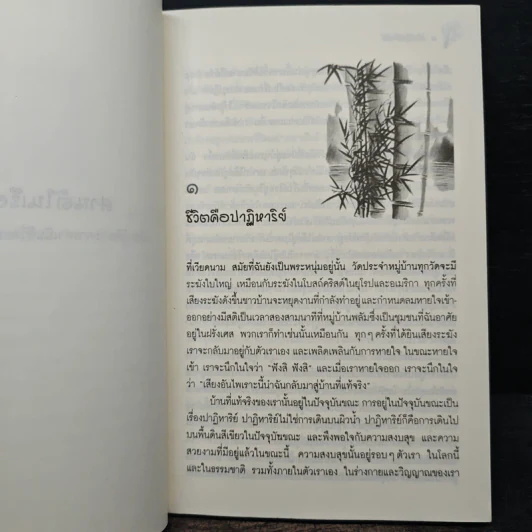 ๑
ชีวิตคือปาฏิหาริย์
ที่เวียดนาม สมัยที่ฉันยังเป็นพระหนุ่มอยู่นั้น วัดประจำหมู่บ้านทุกวัดจะมี
ระฆังใบใหญ่ เหมือนกับระฆังในโบสถ์คริสต์ในยุโรปและอเมริกา ทุกครั้งที่
เสียงระฆังดังขึ้นชาวบ้านจะหยุดงานที่กำลังทำอยู่ และกำหนดลมหายใจเข้า-
ออกอย่างมีสติเป็นเวลาสองสามนาทีที่หมู่บ้านพลัมซึ่งเป็นชุมชนที่ฉันอาศัย
อยู่ในฝรั่งเศส พวกเราก็ทำเช่นนั้นเหมือนกัน ทุกๆ ครั้งที่ได้ยินเสียงระฆัง
เราจะกลับมาอยู่กับตัวเราเอง และเพลิดเพลินกับการหายใจ ในขณะหายใจ
เข้า เราจะนึกในใจว่า "ฟังสิ ฟังสิ" และเมื่อเราหายใจออก เราจะนึกในใจ
ว่า "เสียงอันไพเราะนี้นำฉันกลับมาสู่บ้านที่แท้จริง"
บ้านที่แท้จริงของเรานั้นอยู่ในปัจจุบันขณะ การอยู่ในปัจจุบันขณะเป็น
เรื่องปาฏิหาริย์ ปาฏิหาริย์ไม่ใช่การเดินบนผิวน้ำ ปาฏิหาริย์ก็คือการเดินไป
บนพื้นดินสีเขียวในปัจจุบันขณะ และพึงพอใจกับความสงบสุข และความ
สวยงามที่มีอยู่แล้วในขณะนี้ ความสงบสุขนั้นอยู่รอบๆ ตัวเรา ในโลกนี้
และในธรรมชาติ รวมทั้งภายในตัวเราเอง ในร่างกายและวิญญาณของเรา